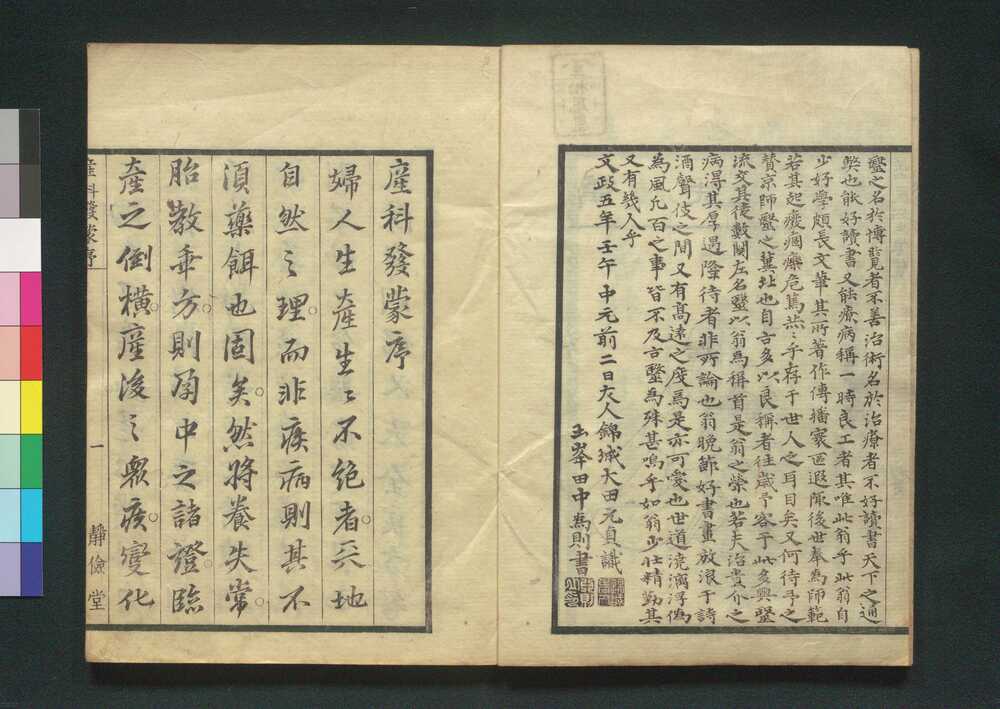 醫之名於博覽者不善治術名於治療者不好讀書天下之通
弊也能好讀書又能療病稱一時良工者其唯此翁乎此翁自
少好學頗長文筆其所著作傳播寰區遐陬後世奉為師範
若其起癈痼癴危篤恭〻乎存于世人之耳目矣又何待予之
贊京師醫之冀北也自古多以良稱者往歲予客于此多與醫
流交其徒數閱左名醫以翁為稱首是翁之榮也若夫治貴介之
病得其厚遇降待者非所論也翁晚節好書畫放浪于詩
酒聲伎之間又有高遠之度為是亦可愛也世道澆漓浮偽
為風凡百之事皆不及古醫為殊甚嗚乎如翁少壯精勤其
又有幾人乎
文政五年壬午中元前二日友人錦城大田元貞識
玉峯田中為則書
產科發蒙序
婦人生產生〻不絕者天地
自然之理而非疾病則其不
須藥餌也固矣然將養失常
胎教乖方則孕中之諸證臨
產之倒橫產後之衆疾變化
產科發蒙序
一
靜儉堂